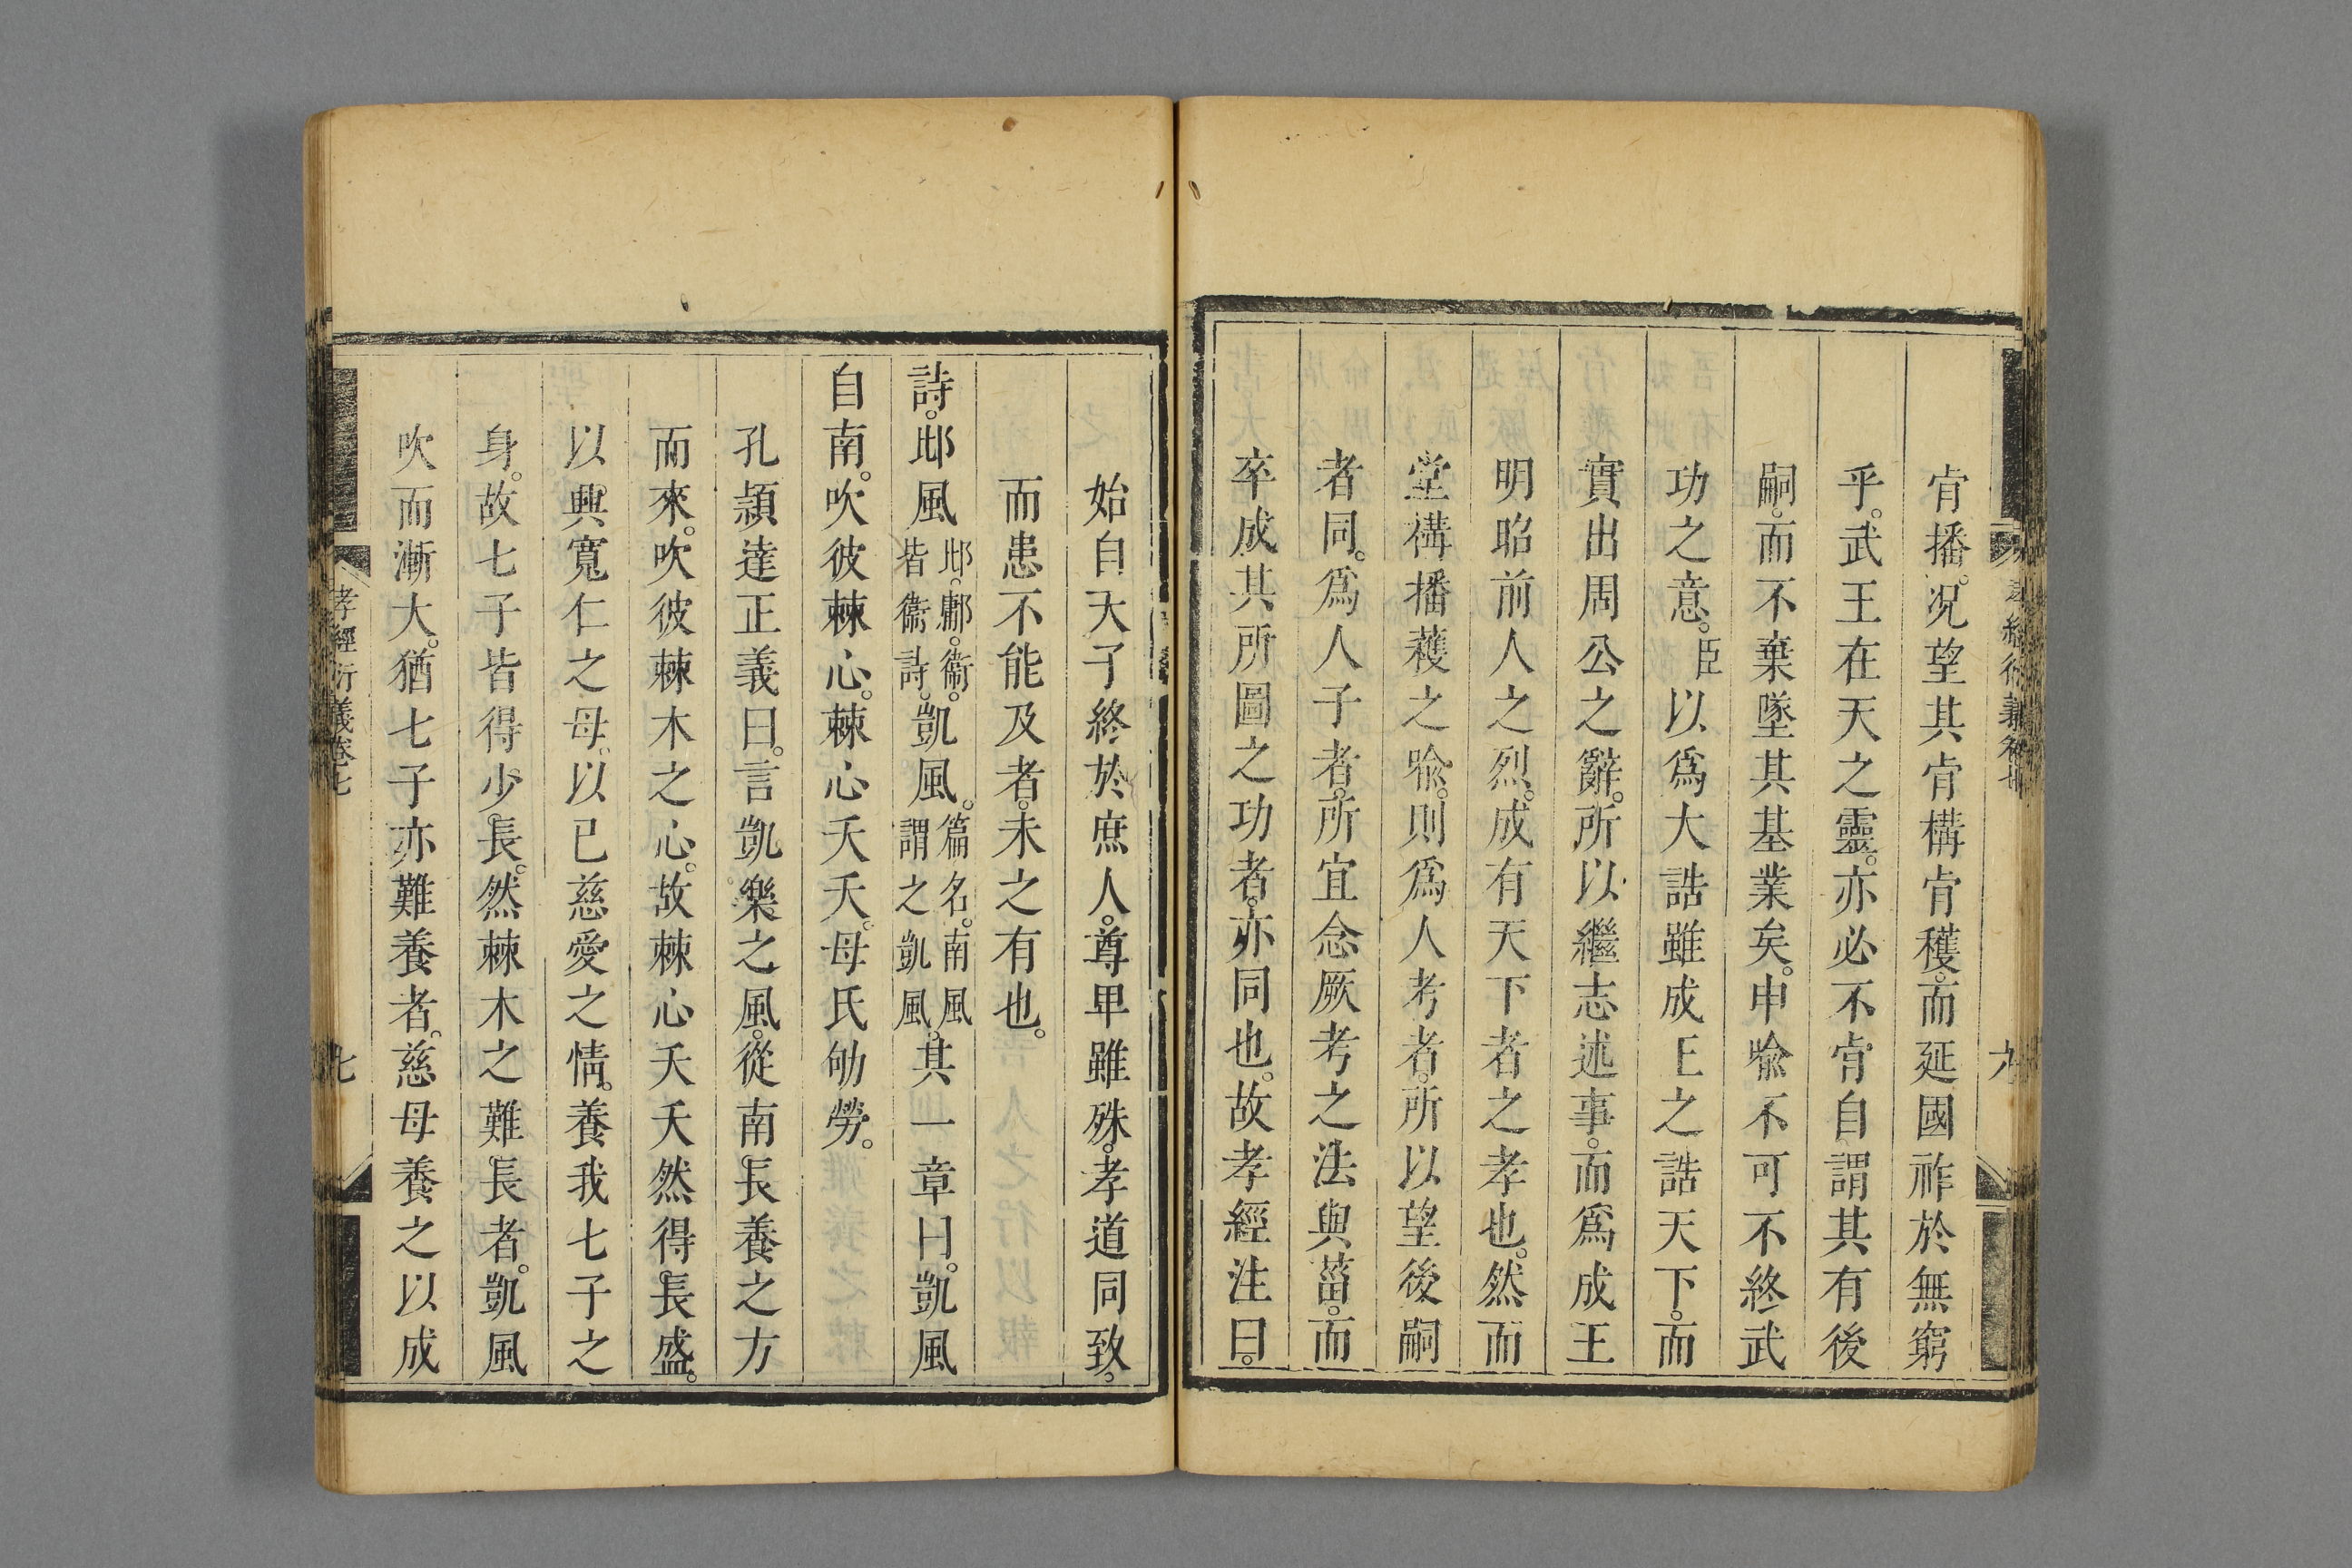 肯播。况望其肯構肯穫。而延國祚於無窮
乎。武王在天之靈。亦必不肯自謂其有後
嗣。而不棄墜其基業矣。申喻不可不終武
功之意。臣以爲大誥雖成王之誥天下。而
實出周公之辭。所以繼志述事。而爲成王
明昭前人之烈。成有天下者之孝也。然而
堂構播穫之喻。則爲人考者。所以望後嗣
者同。爲人子者。所宜念厥考之法與菑。而
卒成其所圖之功者。亦同也。故孝經注曰。
始自天子終於庶人。尊卑雖殊。孝道同致。
而患不能及者。未之有也。
詩。邶風邶。鄘。衞。皆衞詩。凱風。篇名。南風謂之凱風。其一章曰。凱風
自南。吹彼棘心。棘心夭夭。母氏劬勞。
孔頴達正義曰。言凱樂之風。從南長養之方
而來。吹彼棘木之心。故棘心夭夭然得長盛。
以興寬仁之母。以已慈愛之情。養我七子之
身。故七子皆得少長。然棘木之難長者。凱風
吹而漸大。猶七子亦難養者。慈母養之以成
孝經衍義卷七
七